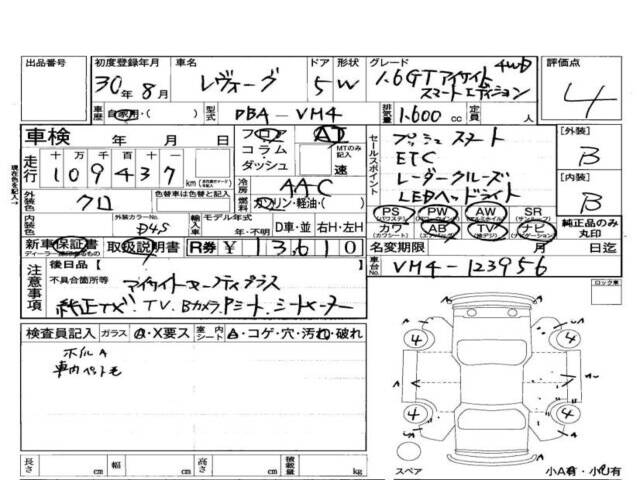 出品番号
初度登録年月
30年 8月
車名
レヴォーグ
ドア
5
形状
W
グレード
1.6GT アイサイト 4WD
スマートエディション
評価点
4
車歴 自家用・( )
型式
DBA-VM4
排気量
1.600 cc
定員
人
車検 年 月 日
フロア
コラム・
ダッシュ
AT
MTのみ記入
速
走行
十万千百十一
109437
km
外装色
クロ
色替車は色替と記入
冷房
AAC
燃料
ガソリン・軽油・( )
内装色
外装カラーNo.
D4S
輸入車
モデル年式
年・不明
D車・並 右H・左H
セールスポイント
プッシュスタート
ETC
レーダークルーズ
LEDヘッドライト
PS PW AW SR
カワ AB TV ナビ
[外装]
B
[内装]
B
純正品のみ
丸印
現在色を記入→
新車保証書
取扱説明書
R券 ¥ 13,610
名変期限 月 日迄
車台No.
VM4-123956
注意事項
後日品【 】
不具合箇所等
アイサイトセーフティプラス
純正TX. TV. Bカメラ. Pシート. シートヒーター
ロック車
検査員記入
ガラス
A・X要ス
室内シート
A・コゲ・穴・汚れ・破れ
ホイルA
車内ペット毛
4
4
4
4
スペア
小A有・小U有
長さ cm
幅 cm
高さ cm
積載量 kg